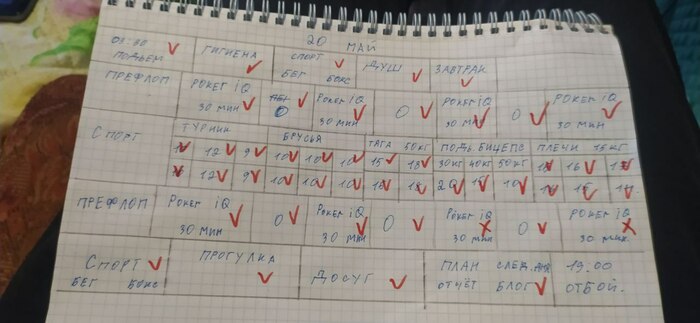 20 МАЙ
03:00 ПОДЬЕМ ГИГИЕНА СПОРТ БЕГ БОКС ДУШ ЗАВТРАК
ПРЕФЛОП РОКЕР iQ 30 МИН 0 РОКЕР iQ 30 МИН 0 РОКЕР iQ 30 МИН 0 РОКЕР iQ 30 МИН
СПОРТ
ТУРНИК БРУСЬЯ ТЯГА 50КГ ПОДЬ БИЦЕПС ПЛЕЧИ 15 КГ
12 9 10 10 10 15 18 30КГ 40КГ 50КГ 16
12 9 10 10 10 18 18 20 15 10
ПРЕФЛОП РОКЕР iQ 30 МИН 0 РОКЕР iQ 30 МИН 0 РОКЕР iQ 30 МИН 0 РОКЕР iQ 30 МИН
СПОРТ БЕГ БОКС ПРОГУЛКА ДОСУГ ПЛАН СЛЕД. ДНЯ ОТЧЁТ БЛОГ 19:00 ОТБОЙ.